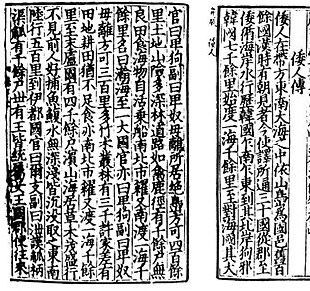 倭人傳
倭人在帶方東南大海之中依山島爲國邑舊百
餘國漢時有朝見者今使譯所通三十國從郡至
倭循海岸水行歷韓國乍南乍東到其北岸狗邪
韓國七千餘里始度一海千餘里至對海國其大
官曰卑狗副曰卑奴母離所居絶島方可四百餘
里土地山險多深林道路如禽鹿徑有千餘戶無
良田食海物自活乗船南北市糴又南渡一海千
餘里名曰瀚海至一大國官亦曰卑狗副曰卑奴
母離方可三百里多竹木叢林有三千許家差有
田地耕田猶不足食亦南北市糴又渡一海千餘
里至末盧國有四千餘戶濵山海居草木茂盛行
不見前人好捕魚鰒水無深淺皆沈没取之東南
陸行五百里到伊都國官曰爾支副曰泄謨觚柄
渠觚有千餘戶丗有王皆統屬女王國郡使往來